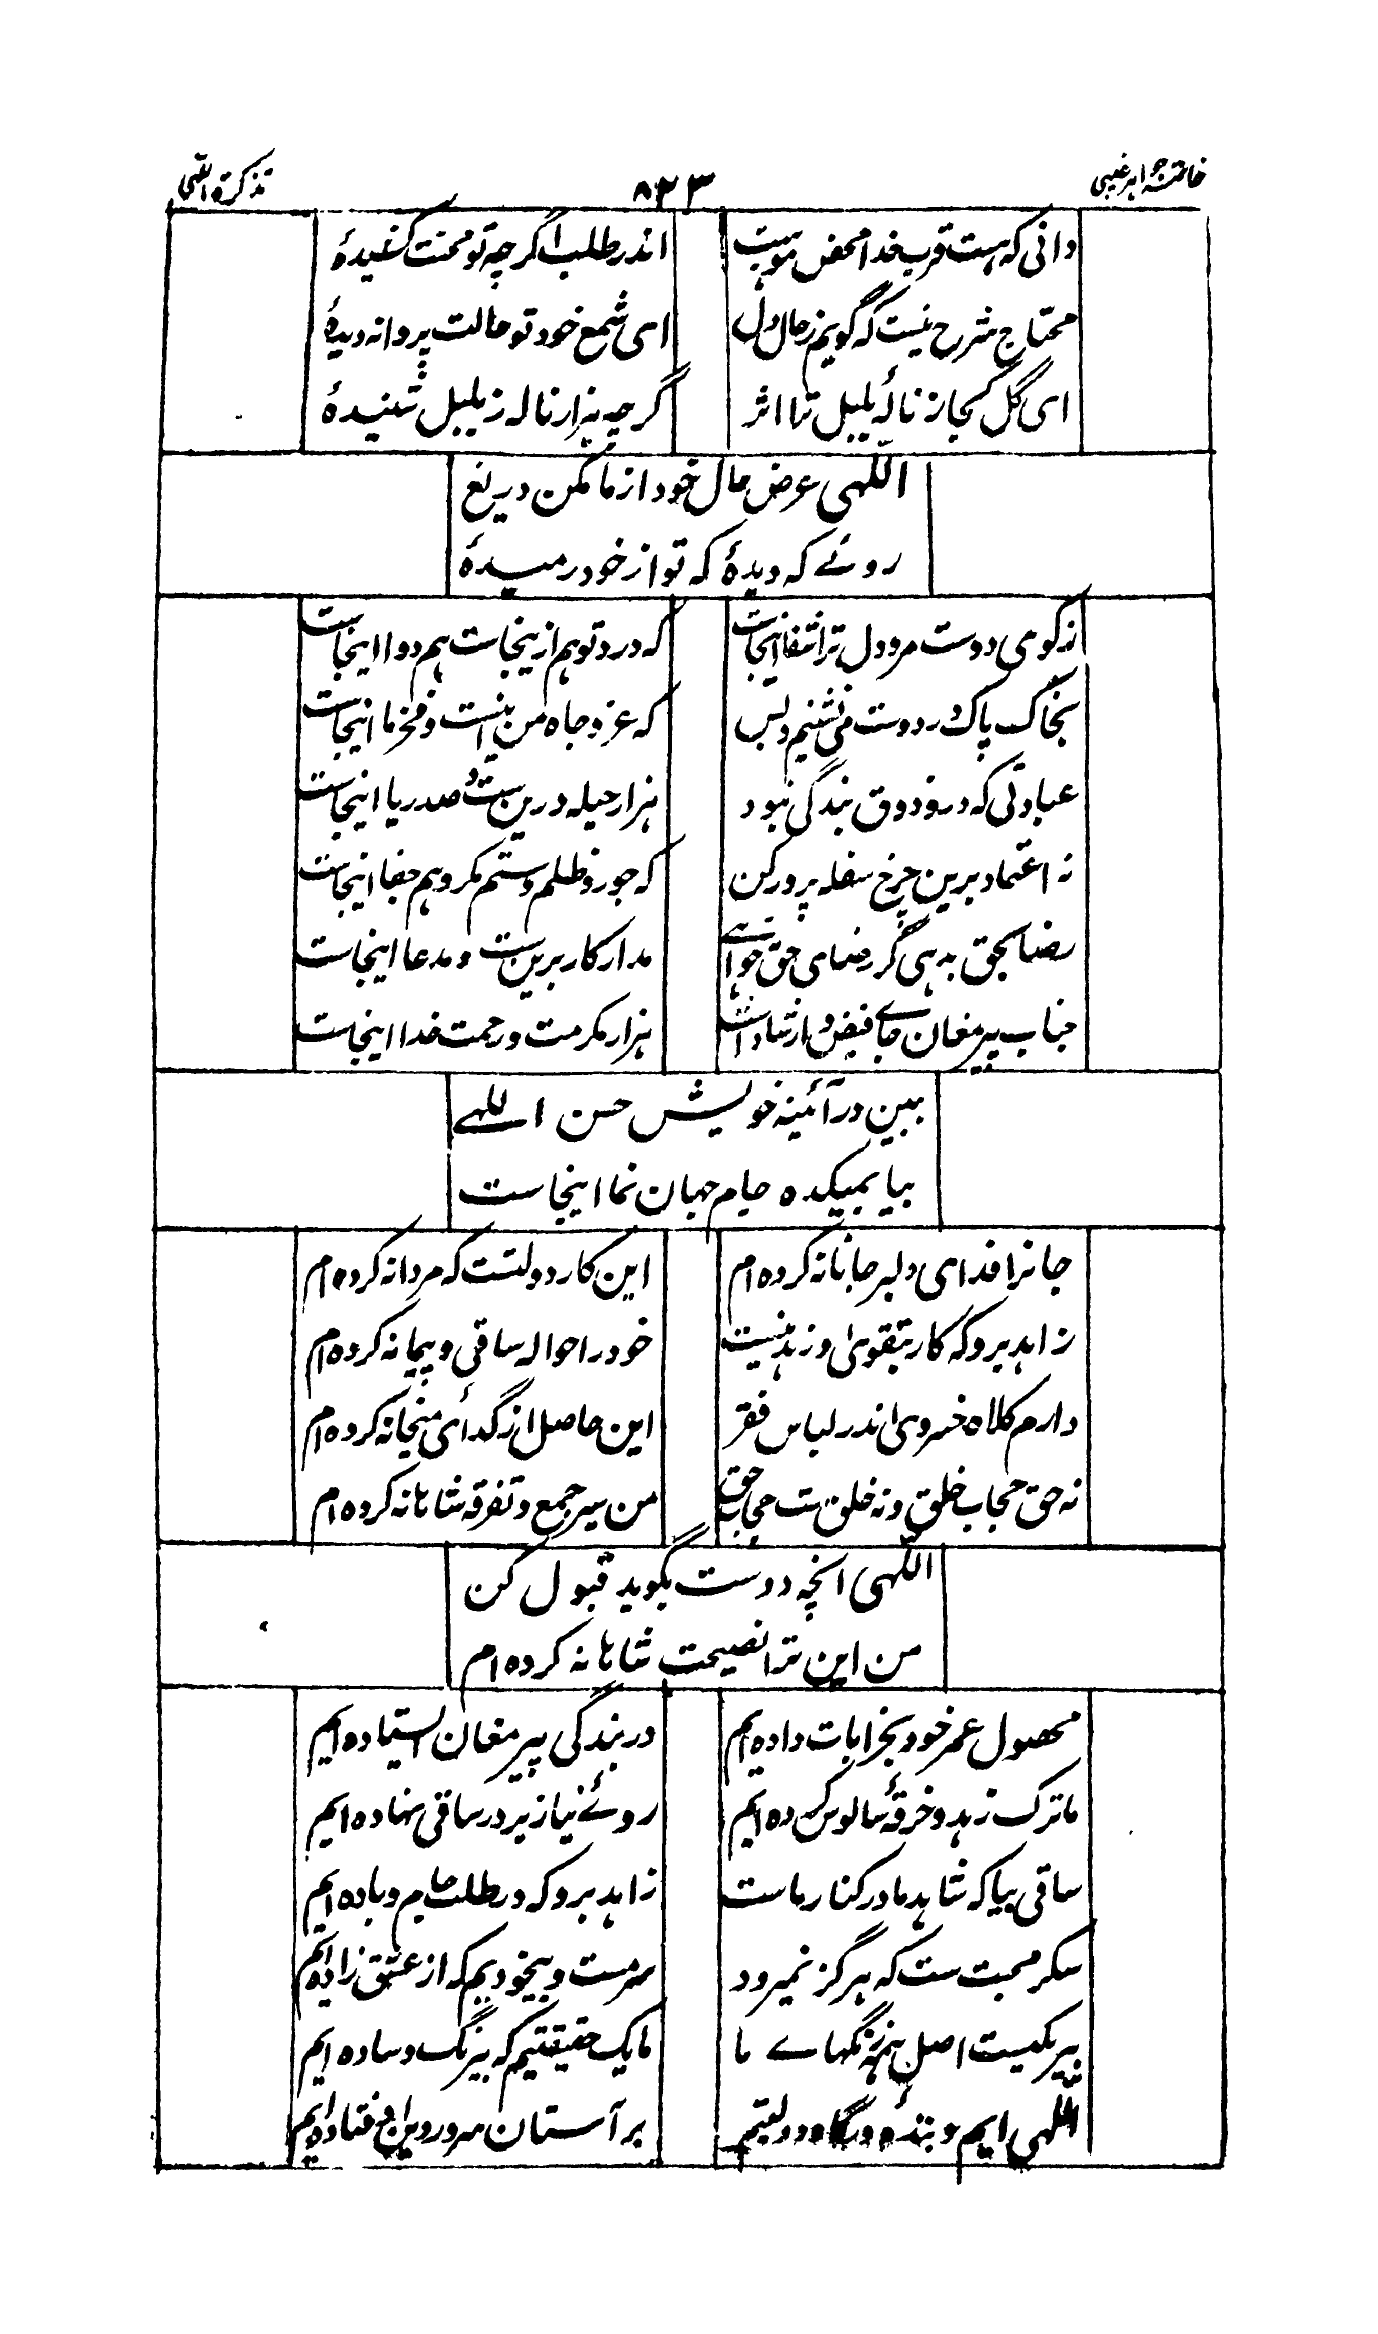 خاتمہ جواہر غیبی ۸۳۳ تذکرۃ الٰہی
دانی کہ ہست قرب خدا محض موہبت اندر طلب اگرچہ تو محنت کشیدۂ
محتاج شرح نیست کہ گویم ز حال دل ای شمع خود تو حالت پروانہ دیدۂ
ای گل کجا ز نالۂ بلبل ترا اثر گرچہ ہزار نالہ ز بلبل شنیدۂ
اللّٰہی عرض حال خود از ما مکن دریغ
روئے کہ دیدۂ کہ تو از خود رمیدۂ
ز کوی دوست مرو دل ترا شفا اینجاست کہ درد تو ہم ازینجاست ہم دوا اینجاست
بخاک پاک در دوست می نشینم و بس کہ عز و جاہ من اینست و فخر ما اینجاست
عبادتی کہ درو ذوق بندگی نبود ہزار حیلہ درین ست و صد ریا اینجاست
نہ اعتماد برین چرخ سفلہ پرور کن کہ جور و ظلم و ستم مکر و ہم جفا اینجاست
رضا بحق بدہی گر رضای حق خواہے مدار کار برین ست و مدعا اینجاست
جناب پیر مغان جاے فیض و ارشاد است ہزار مکرمت و رحمت خدا اینجاست
ببین در آئینہ خویش حسن اللہے
بیا بمیکدہ جام جہان نما اینجاست
جانرا فدای دلبر جانانہ کردہ ام این کار دولتست کہ مردانہ کردہ ام
زاہد برو کہ کار بتقوی و زہد نیست خود را حوالہ ساقی و پیمانہ کردہ ام
دارم کلاہ خسروی اندر لباس فقر این حاصل از گدائی میخانہ کردہ ام
نہ حق حجاب خلق و نہ خلق ست حجاب حق من سیر جمع و تفرقہ شاہانہ کردہ ام
اللّٰہی انچہ دوست بگوید قبول کن
من این ترا نصیحت شاہانہ کردہ ام
محصول عمر خود بخرابات دادہ ایم در بندگی پیر مغان ایستادہ ایم
ما ترک زہد و خرقۂ سالوس کردہ ایم روئے نیاز بر در ساقی نہادہ ایم
ساقی بیا کہ شاہد ما در کنار ماست زاہد برو کہ در طلب جام و بادہ ایم
سکر محبت ست کہ ہرگز نمیرود سرمست و بیخودیم کہ از عشق زادہ ایم
بیرنگیست اصل ہمہ رنگہاے ما ما یک حقیقتیم کہ بیرنگ و سادہ ایم
اللّٰہی ایم و بندۂ درگاہ دولتیم بر آستان سرور دین اوفتادہ ایم